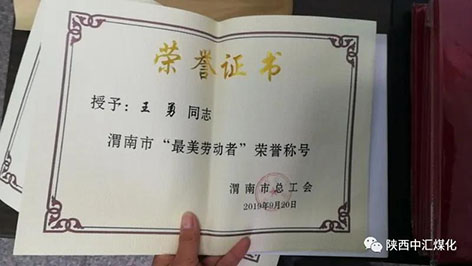 荣誉证书
授予：王勇同志
渭南市“最美劳动者”荣誉称号
渭南市总工会
2019年9月20日
陕西中汇煤化